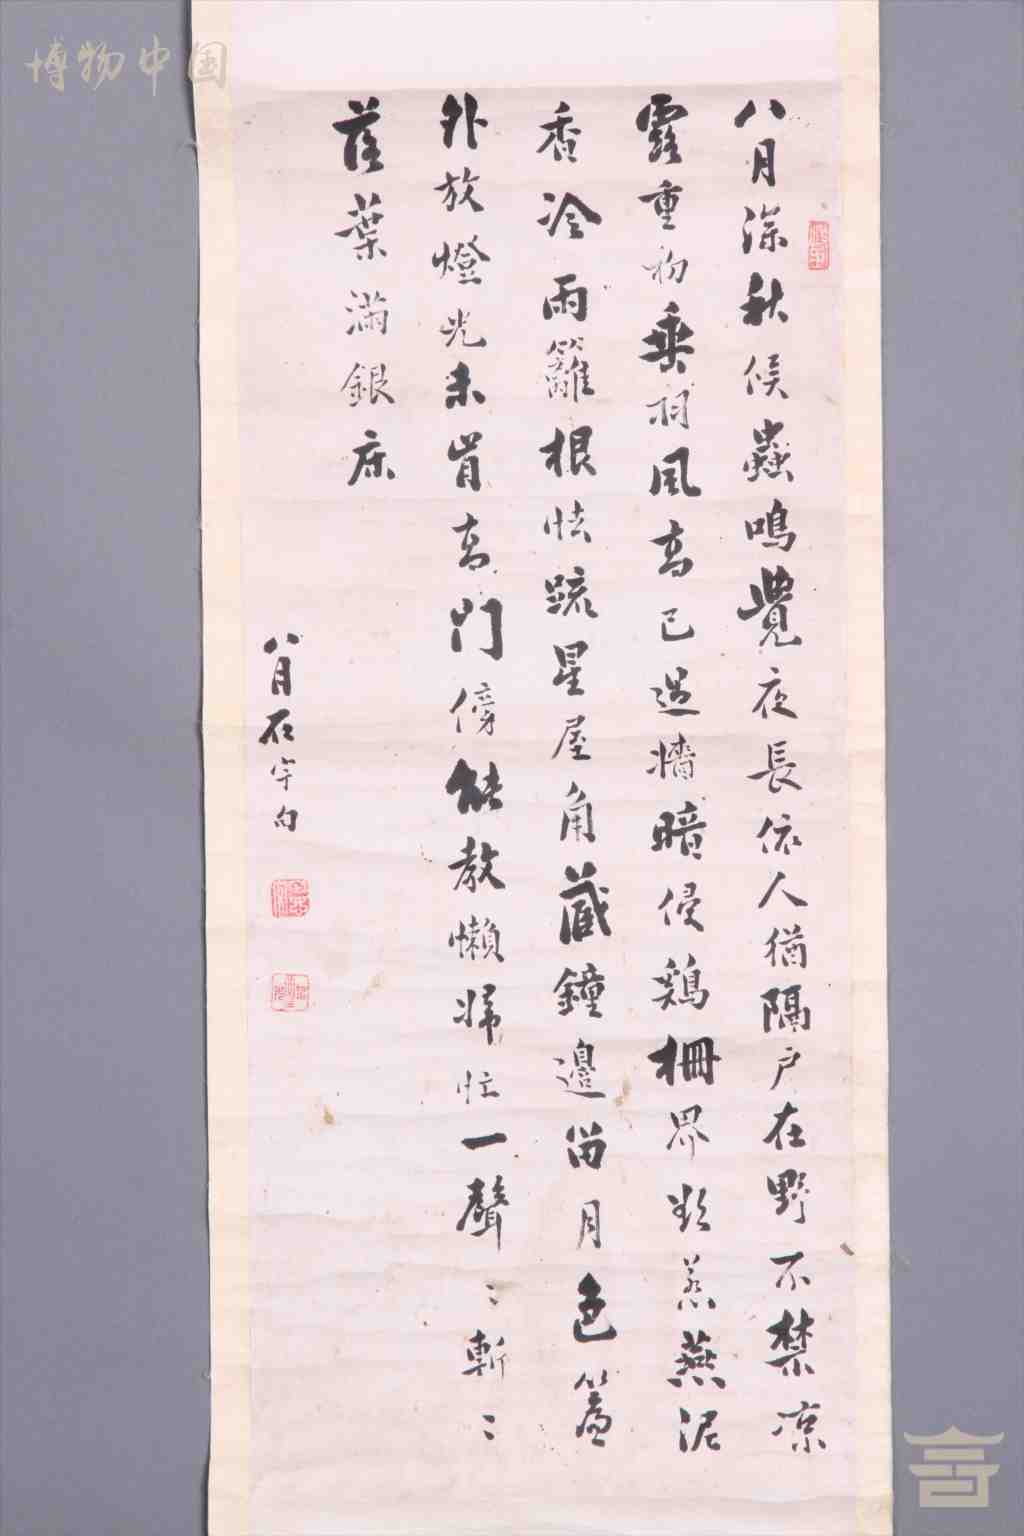 八月深秋候蟲鳴覺夜長依人猶隔户在野不禁凉
露重初垂羽風高已過牆暗侵鷄栅界欺惹燕泥
香冷雨籬根怯疏星屋角藏鐘邊留月色簷
外放燈光未肯高門傍能教懶婦忙一聲〻斬〻
落葉滿銀床
八月石宇白
博物中国